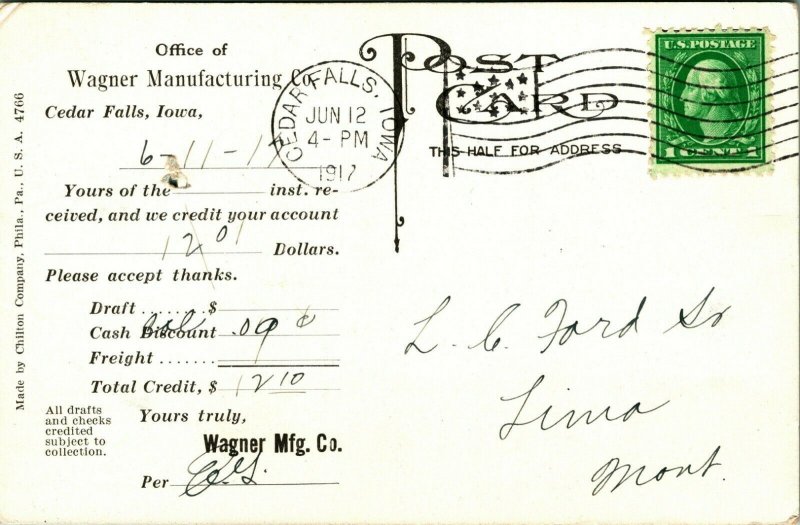 Made by Chilton Company, Phila., Pa., U. S. A. 4766
Office of
Wagner Manufacturing Co.
Cedar Falls, Iowa,
6-11-17
Yours of the inst. re-
ceived, and we credit your account
12 01 Dollars.
Please accept thanks.
Draft ....... $
Cash Discount .09 ¢
Freight .......
Total Credit, $ 12 10
All drafts
and checks
credited
subject to
collection.
Yours truly,
Wagner Mfg. Co.
Per
CEDAR FALLS, IOWA
JUN 12
4- PM
1917
POST
CARD
THIS HALF FOR ADDRESS
U.S. POSTAGE
1 CENT 1
L. C. Ford Sr
Lima
Mont.